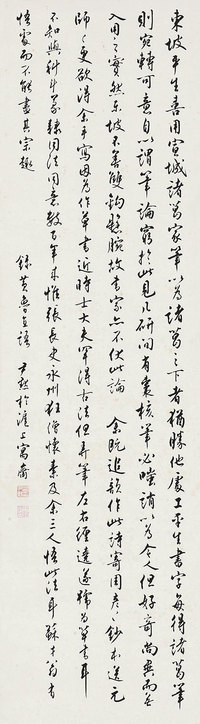 東坡平生喜用宣城諸葛家筆以為諸葛之下者猶勝他處工平生書字每得諸葛筆
則宛轉可意自以謂筆論窮於此見几研間有棗核筆必嗤誚以為今人但好奇尚異而無
入用之實然東坡不善雙鉤懸腕故書家亦不伏此論 余既追韻作此詩寄周彥〻鈔本送元
師〻更欲得余手寫因為作草書近時士大夫罕得古法但弄筆左右纏遶遂號為草書耳
不知與科斗篆隸同法同意數百年來惟張長史永州狂僧懷素及余三人悟此法耳蘇才翁有
悟處而不能盡其宗趣 錄黃魯直語 尹默於滬上寓齋